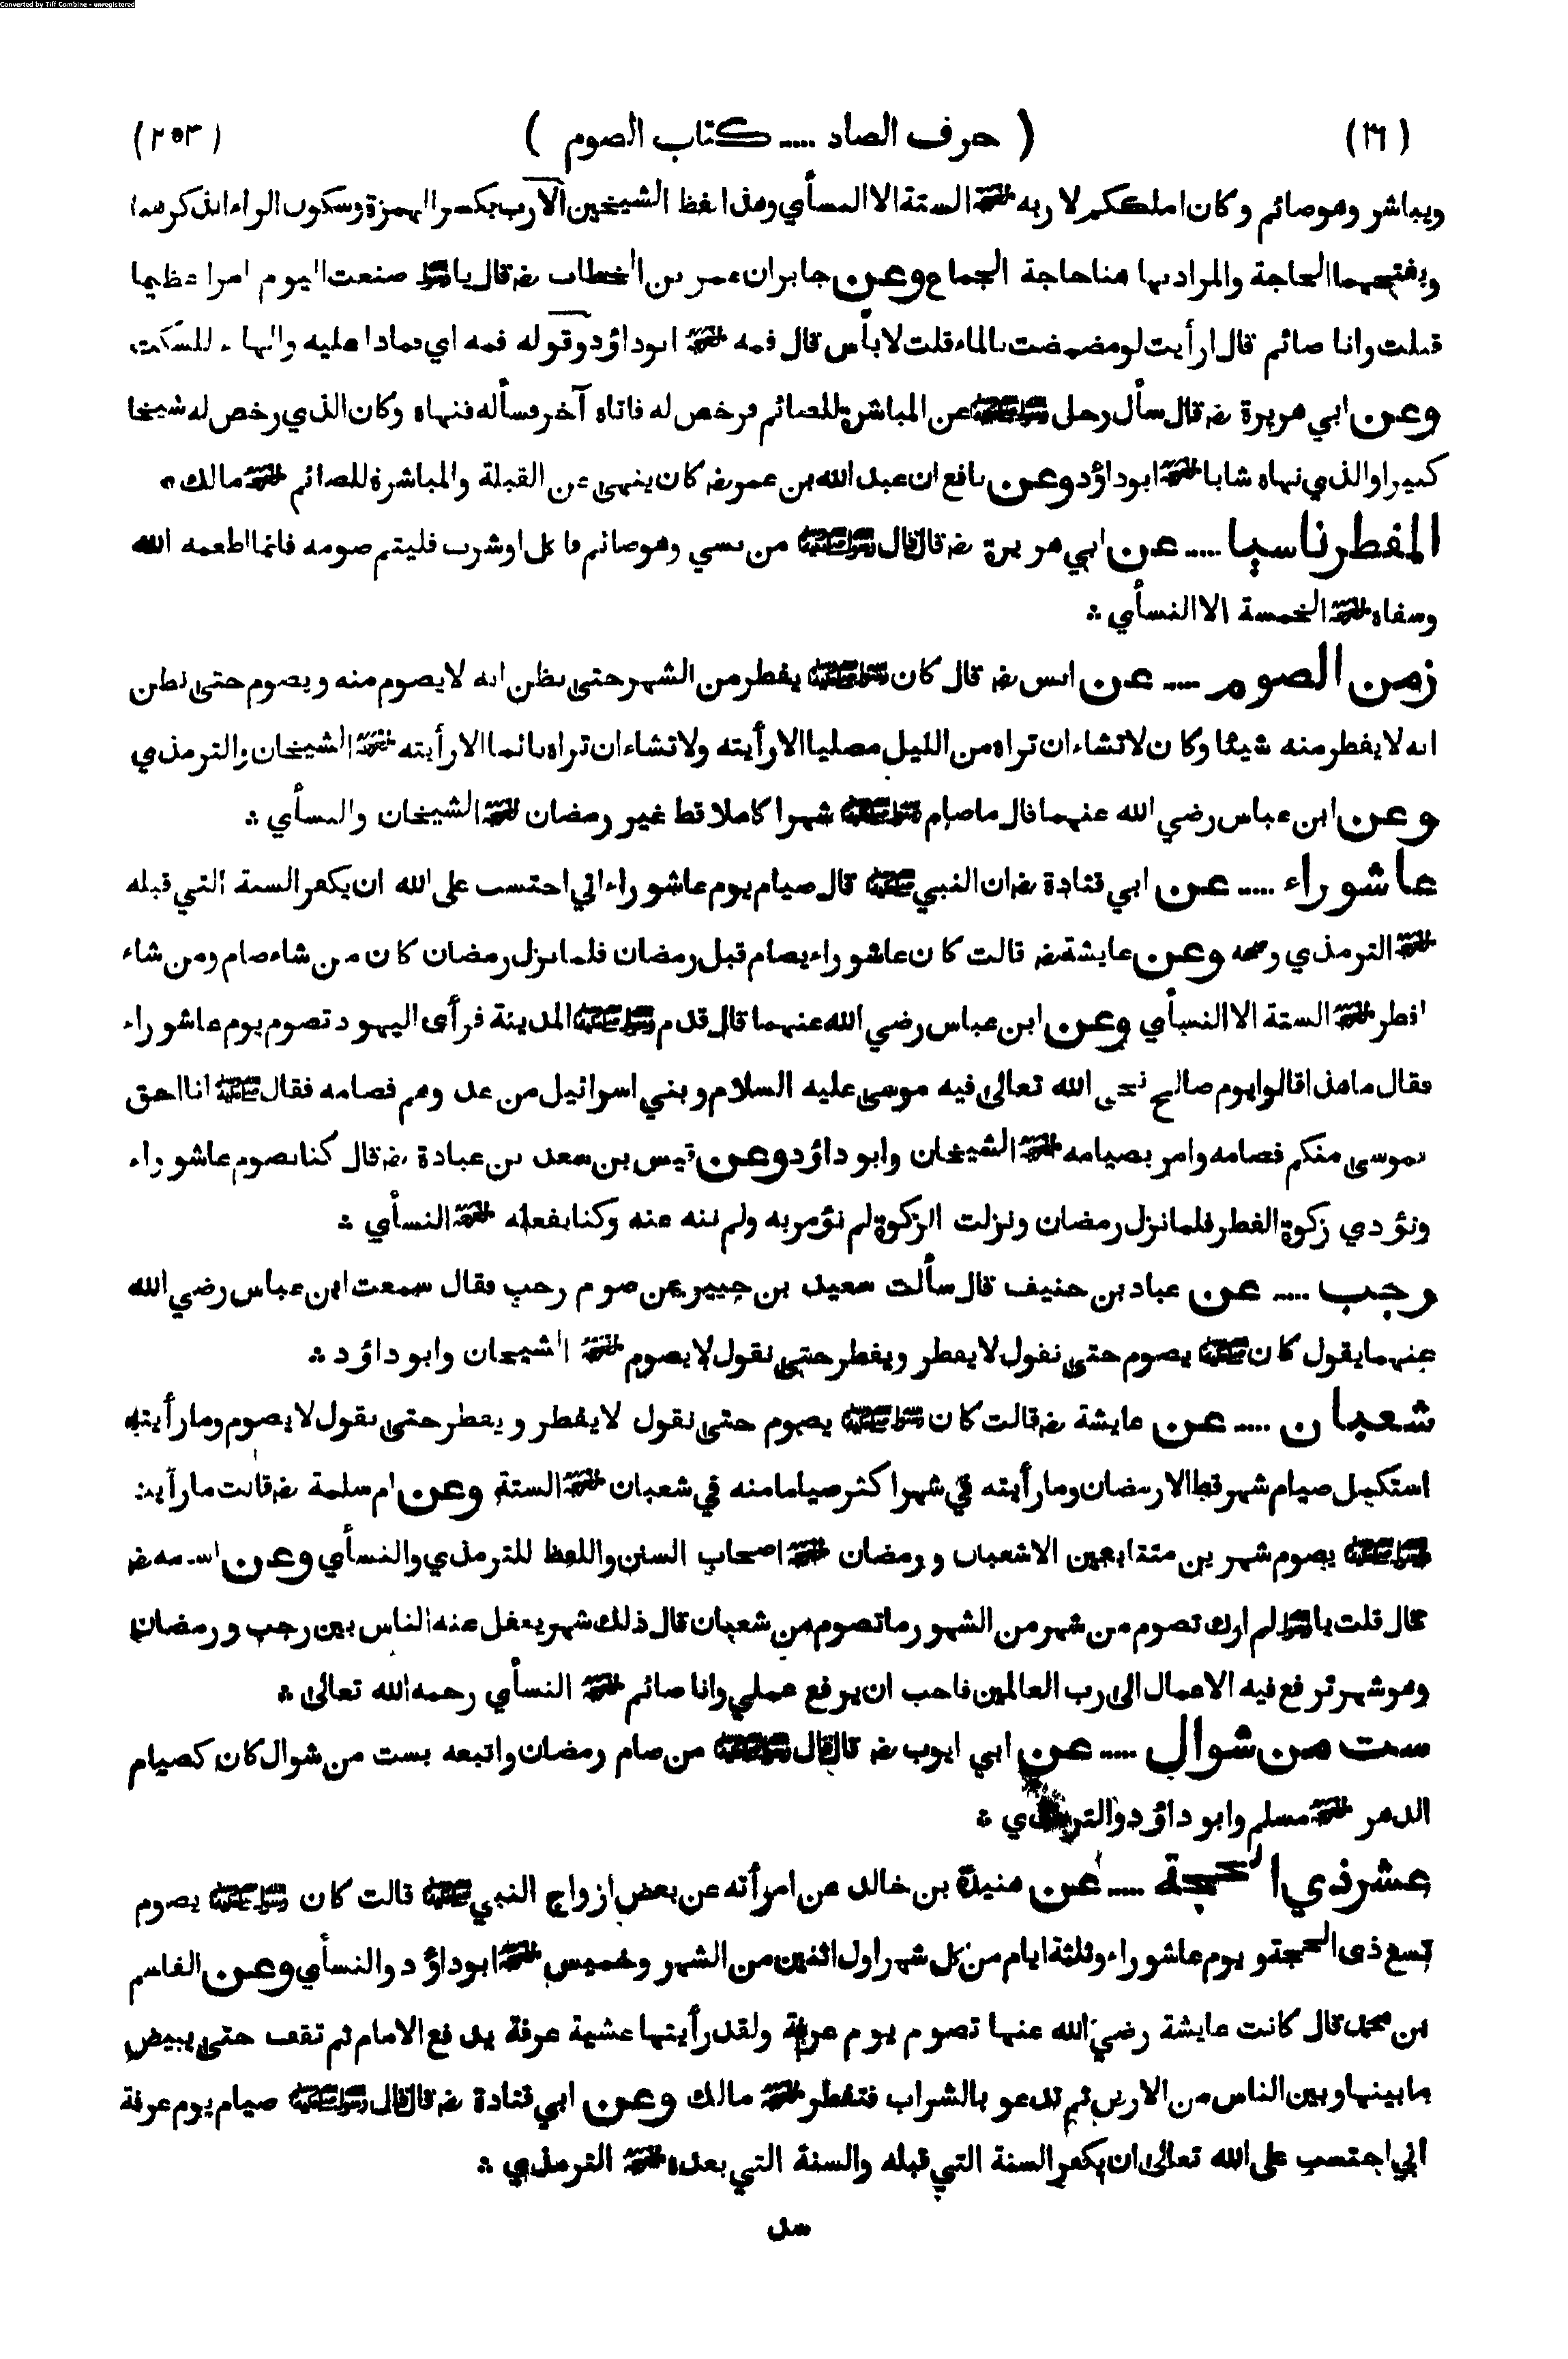 Converted by Tiff Combine - unregistered
(٣٦) ( حرف الصاد ..... كتاب الصوم ) (٢٥٣)
ويباشر وهو صائم وكان املككم لا ربه اخرجه الستة الا النسأي وهذا لفظ الشيخين الارب بكسر الهمزة وسكون الراء الذكر هنا
وبفتحهما الحاجة والمراد بها هنا حاجة الجماع وعن جابر ان عمر بن الخطاب رضـ قال يا رسول الله صنعت اليوم امرا عظيما
قبلت وانا صائم قال ارأيت لو مضمضت بالماء قلت لا بأس قال فمه اخرجه ابو داؤد وقوله فمه اي فماذا عليه والهاء للسكت
وعن ابي هريرة رضـ قال سأل رجل رسول الله صلى الله عليه وسلم عن المباشرة للصائم فرخص له فاتاه آخر فسأله فنهاه وكان الذي رخص له شيخا
كبيرا والذي نهاه شابا اخرجه ابو داؤد وعن نافع ان عبد الله بن عمر رضـ كان ينهى عن القبلة والمباشرة للصائم اخرجه مالك ؞
المفطر ناسيا ..... عن ابي هريرة رضـ قال قال رسول الله صلى الله عليه وسلم من نسي وهو صائم فاكل اوشرب فليتم صومه فانما اطعمه الله
وسقاه اخرجه الخمسة الا النسأي ؞
زمن الصوم ..... عن انس رضـ قال كان رسول الله صلى الله عليه وسلم يفطر من الشهر حتى نظن انه لا يصوم منه ويصوم حتى نظن
انه لا يفطر منه شيئا وكان لا تشاء ان تراه من الليل مصليا الا رأيته ولا تشاء ان تراه نائما الا رأيته اخرجه الشيخان والترمذي
وعن ابن عباس رضي الله عنهما قال ما صام رسول الله صلى الله عليه وسلم شهرا كاملا قط غير رمضان اخرجه الشيخان والنسأي ؞
عاشوراء ..... عن ابي قتادة رضـ ان النبي صلى الله عليه وسلم قال صيام يوم عاشوراء اني احتسب على الله ان يكفر السنة التي قبله
اخرجه الترمذي وصححه وعن عايشة رضـ قالت كان عاشوراء يصام قبل رمضان فلما نزل رمضان كان من شاء صام ومن شاء
افطر اخرجه الستة الا النسأي وعن ابن عباس رضي الله عنهما قال قدم رسول الله صلى الله عليه وسلم المدينة فرأى اليهود تصوم يوم عاشوراء
فقال ما هذا قالوا يوم صالح نجى الله تعالى فيه موسى عليه السلام وبني اسرائيل من عدوهم فصامه فقال صلى الله عليه وسلم انا احق
بموسى منكم فصامه وامر بصيامه اخرجه الشيخان وابو داؤد وعن قيس بن سعد بن عبادة رضـ قال كنا نصوم عاشوراء
ونؤدي زكوة الفطر فلما نزل رمضان ونزلت الزكوة لم نؤمر به ولم ننه عنه وكنا نفعله اخرجه النسأي ؞
رجب ..... عن عباد بن حنيف قال سألت سعيد بن جبير عن صوم رجب فقال سمعت ابن عباس رضي الله
عنهما يقول كان صلى الله عليه وسلم يصوم حتى نقول لا يفطر ويفطر حتى نقول لا يصوم اخرجه الشيخان وابو داؤد ؞
شعبان ..... عن عايشة رضـ قالت كان رسول الله صلى الله عليه وسلم يصوم حتى نقول لا يفطر ويفطر حتى نقول لا يصوم وما رأيته
استكمل صيام شهر قط الا رمضان وما رأيته في شهر اكثر صياما منه في شعبان اخرجه الستة وعن ام سلمة رضـ قالت ما رأيت
رسول الله صلى الله عليه وسلم يصوم شهرين متتابعين الا شعبان ورمضان اخرجه اصحاب السنن واللفظ للترمذي والنسأي وعن اسامه رضـ
قال قلت يا رسول الله لم ارك تصوم من شهر من الشهور ما تصوم من شعبان قال ذلك شهر يغفل عنه الناس بين رجب ورمضان
وهو شهر ترفع فيه الاعمال الى رب العالمين فاحب ان يرفع عملي وانا صائم اخرجه النسأي رحمه الله تعالى ؞
ست من شوال ..... عن ابي ايوب رضـ قال قال رسول الله صلى الله عليه وسلم من صام رمضان واتبعه بست من شوال كان كصيام
الدهر اخرجه مسلم وابو داؤد والترمذي ؞
عشر ذي الحجة ..... عن هنيدة بن خالد عن امرأته عن بعض ازواج النبي صلى الله عليه وسلم قالت كان رسول الله صلى الله عليه وسلم يصوم
تسع ذى الحجة ويوم عاشوراء وثلثة ايام من كل شهر اول اثنين من الشهر وخميس اخرجه ابو داؤد والنسأي وعن القاسم
بن محمد قال كانت عايشة رضي الله عنها تصوم يوم عرفة ولقد رأيتها عشية عرفة يدفع الامام ثم تقف حتى يبيض
ما بينها وبين الناس من الارض ثم تدعو بالشراب فتفطر اخرجه مالك وعن ابي قتادة رضـ قال قال رسول الله صلى الله عليه وسلم صيام يوم عرفة
اني احتسب على الله تعالى ان يكفر السنة التي قبله والسنة التي بعده اخرجه الترمذي ؞